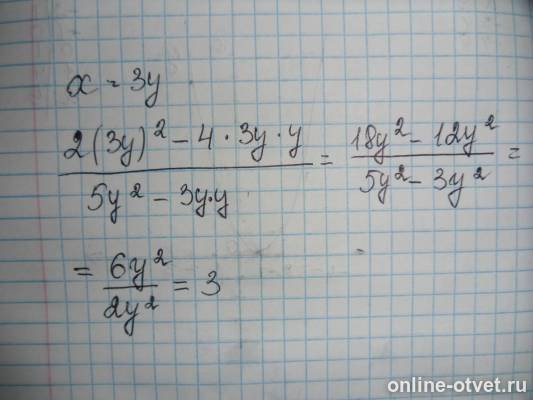 x = 3y
2(3y)² - 4 · 3y · y / 5y² - 3y·y = 18y² - 12y² / 5y² - 3y² =
= 6y² / 2y² = 3
online-otvet.ru